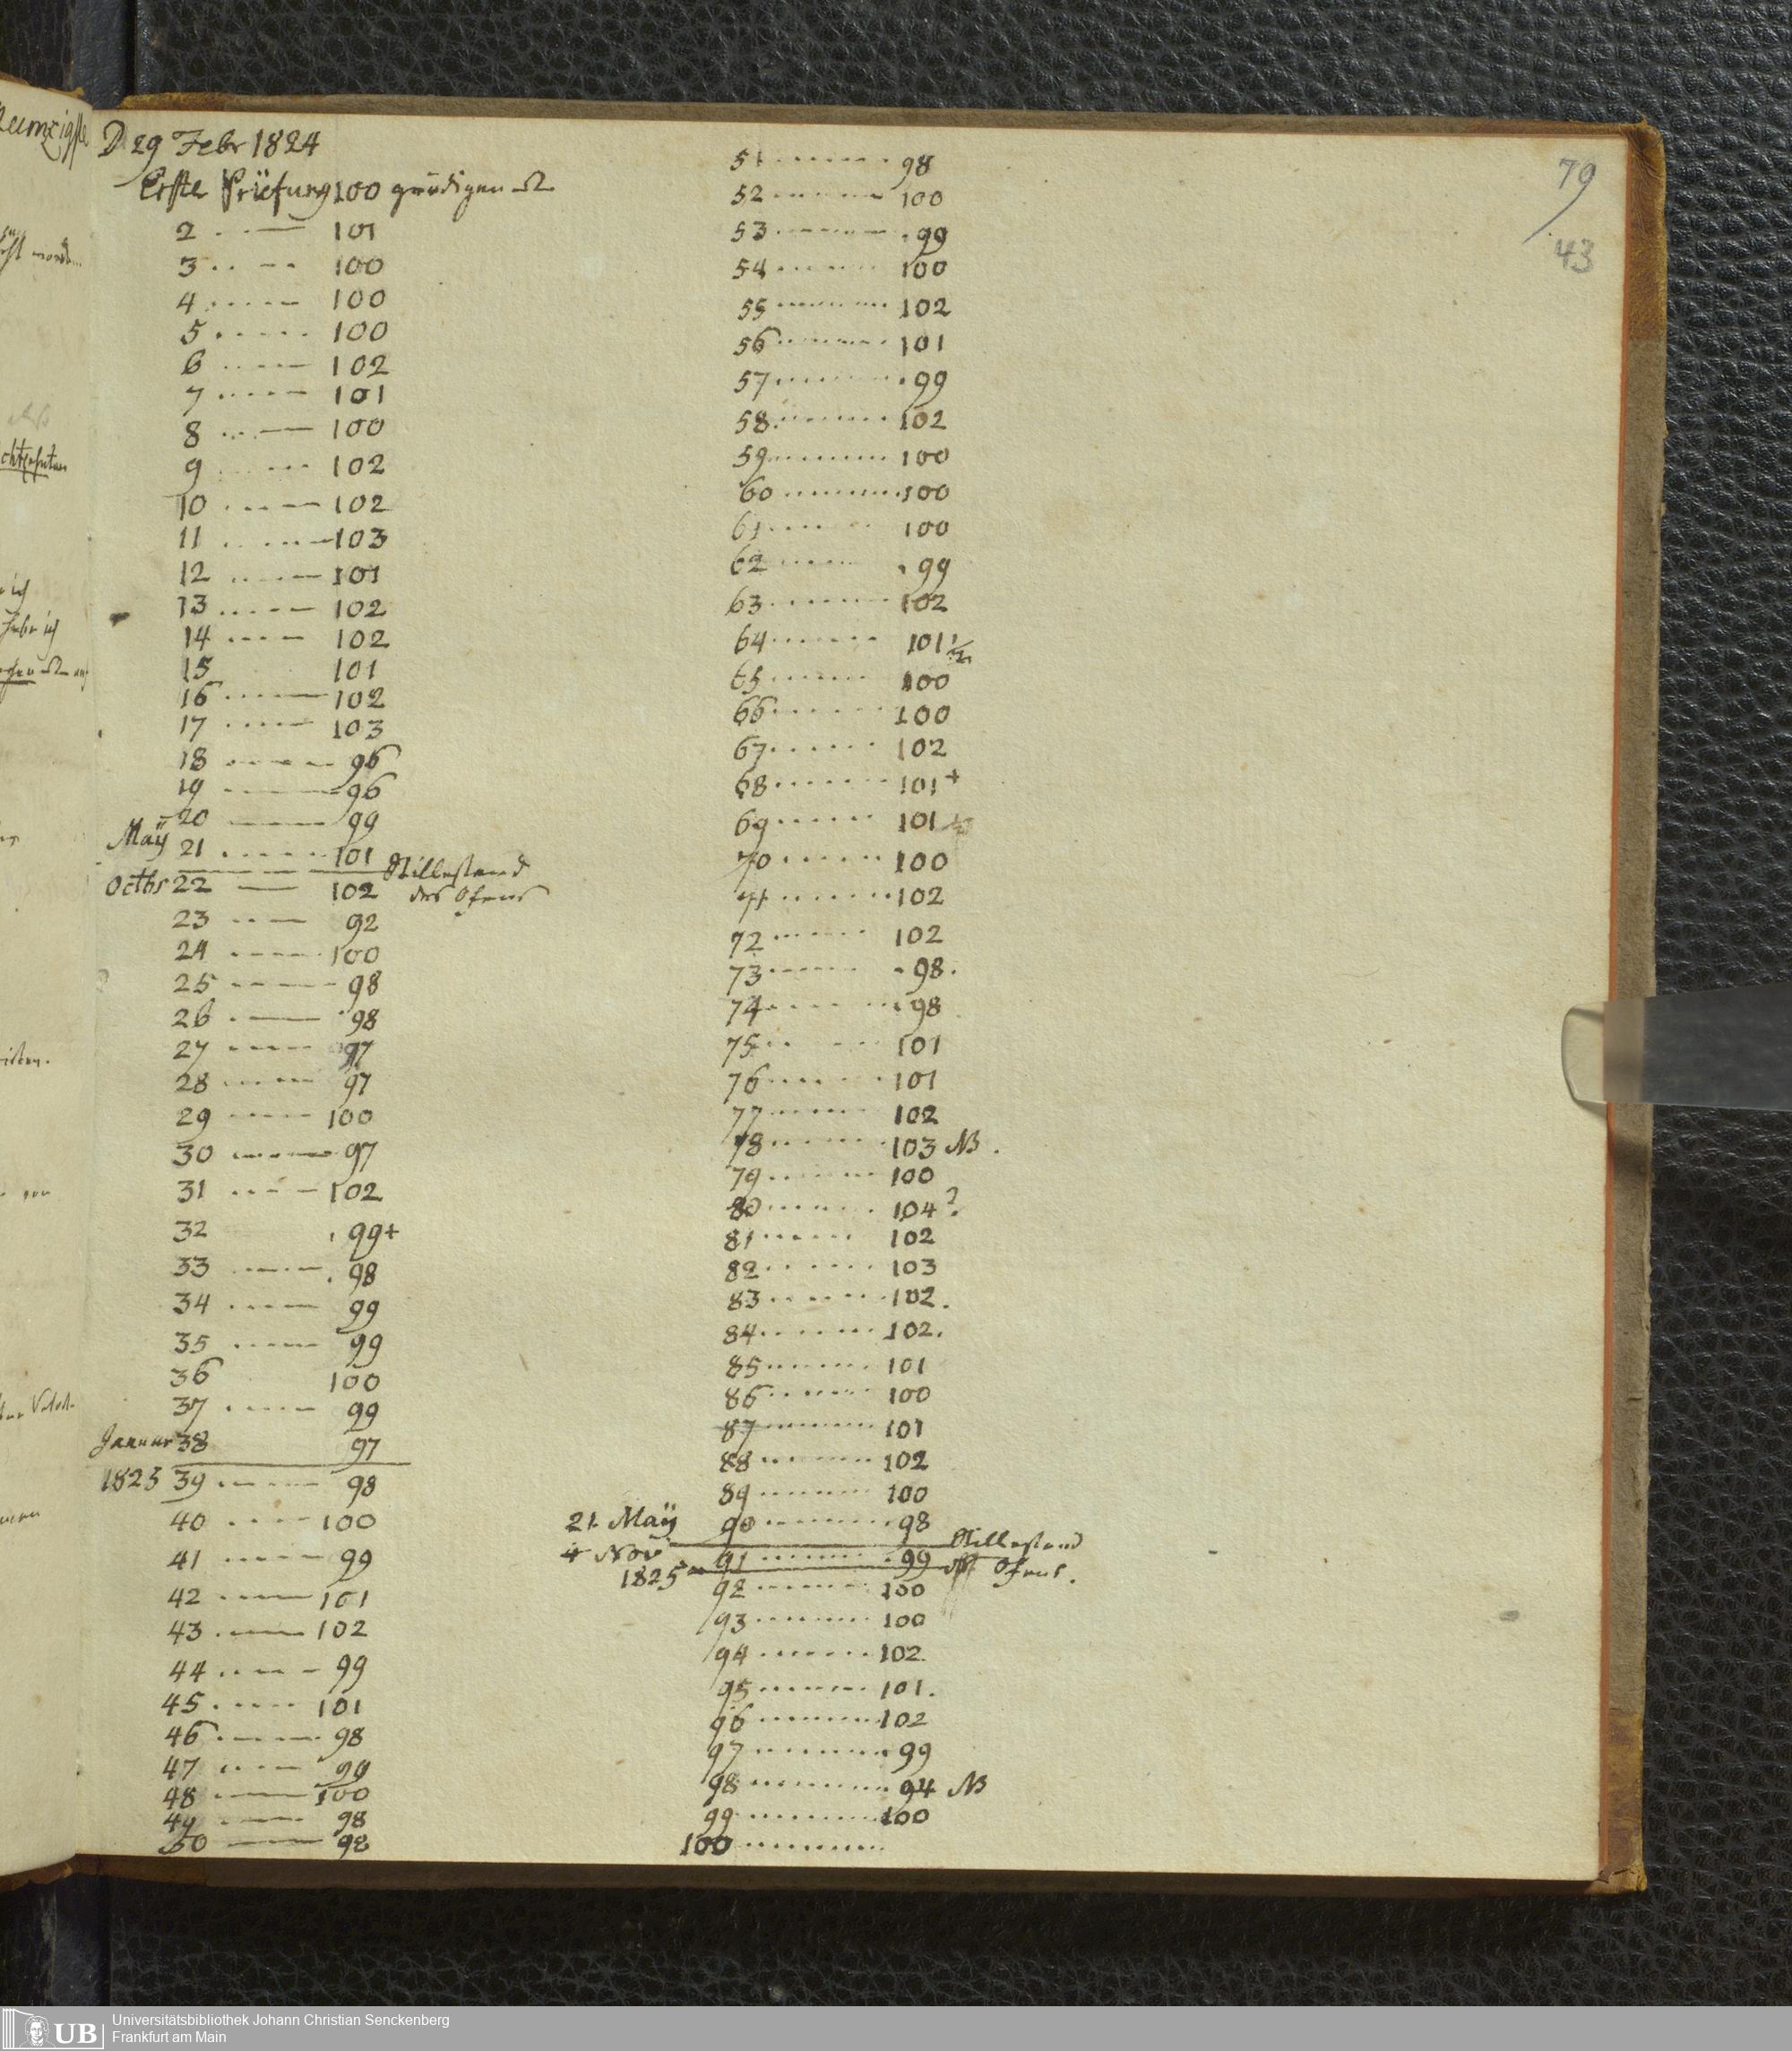 D 29 Febr 1824
Erste Prüfung 100 grädigen
2 ..— 101
3 .. -- 100
4 ..... 100
5 ..... 100
6 ..... 102
7 ..... 101
8 ..... 100
9 ..... 102
10 ..... 102
11 ..... 103
12 ..... 101
13 ..... 102
14 ..... 102
15 101
16 ..... 102
17 ..... 103
18 ..... 96
19 ..... 96
20 ..... 99
Maÿ 21 ..... 101 Stillestand
Octbr 22 — 102 des Ofens
23 ..... 92
24 ..... 100
25 ..... 98
26 ..... 98
27 ..... 97
28 ..... 97
29 ..... 100
30 ..... 97
31 ..... 102
32 99+
33 ..... 98
34 ..... 99
35 ..... 99
36 100
37 ..... 99
Januar 38 97
1825 39 ..... 98
40 ..... 100
41 ..... 99
42 ..... 101
43 ..... 102
44 ..... 99
45 ..... 101
46 ..... 98
47 ..... 99
48 ..... 100
49 ..... 98
50 ..... 98
51 ....... 98
52 ....... 100
53 ....... 99
54 ....... 100
55 ....... 102
56 ....... 101
57 ....... 99
58 ....... 102
59 ....... 100
60 ....... 100
61 ....... 100
62 ....... 99
63 ....... 102
64 ....... 101 1/2
65 ....... 100
66 ....... 100
67 ....... 102
68 ....... 101+
69 ....... 101
70 ....... 100
71 ....... 102
72 ....... 102
73 ....... 98.
74 ....... 98
75 ....... 101
76 ....... 101
77 ....... 102
78 ....... 103 NB.
79 ....... 100
80 ....... 104?
81 ....... 102
82 ....... 103
83 ....... 102.
84 ....... 102.
85 ....... 101
86 ....... 100
87 ....... 101
88 ....... 102
89 ....... 100
21 Maÿ 90 ....... 98 Stillestand
4 Nov 91 ....... 99 des Ofens.
1825 92 ....... 100
93 ....... 100
94 ....... 102.
95 ....... 101.
96 ....... 102
97 ....... 99
98 ....... 94 NB
99 ....... 100
100 .......
79
43
UB
Universitätsbibliothek Johann Christian Senckenberg
Frankfurt am Main